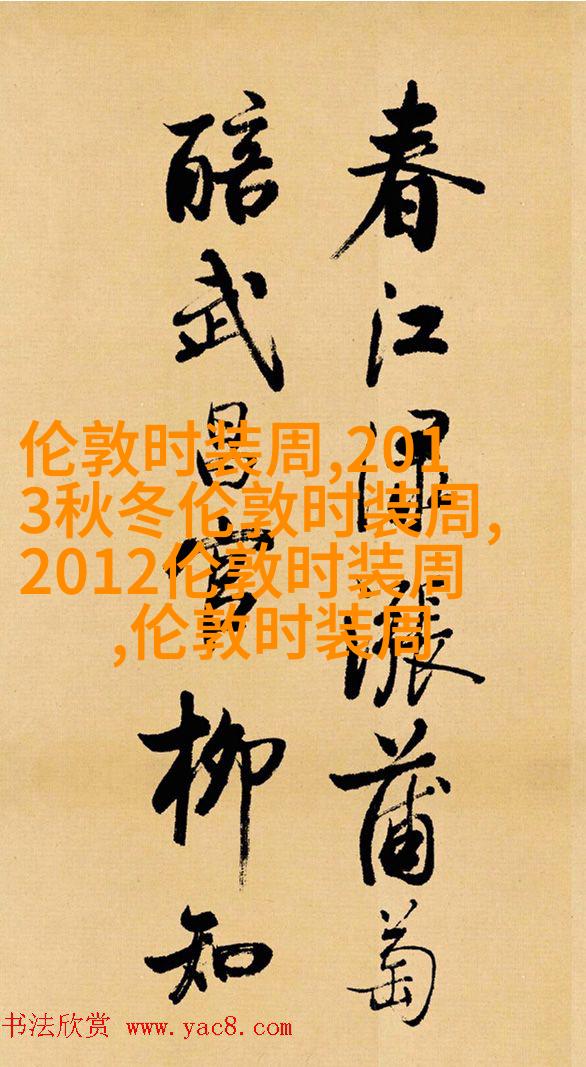 春江漲蒲萄
醅武昌官柳知
伦敦时装周,201
3秋冬伦敦时装周,
2012伦敦时装周
,伦敦时装周
书法欣赏 www.yac8.com